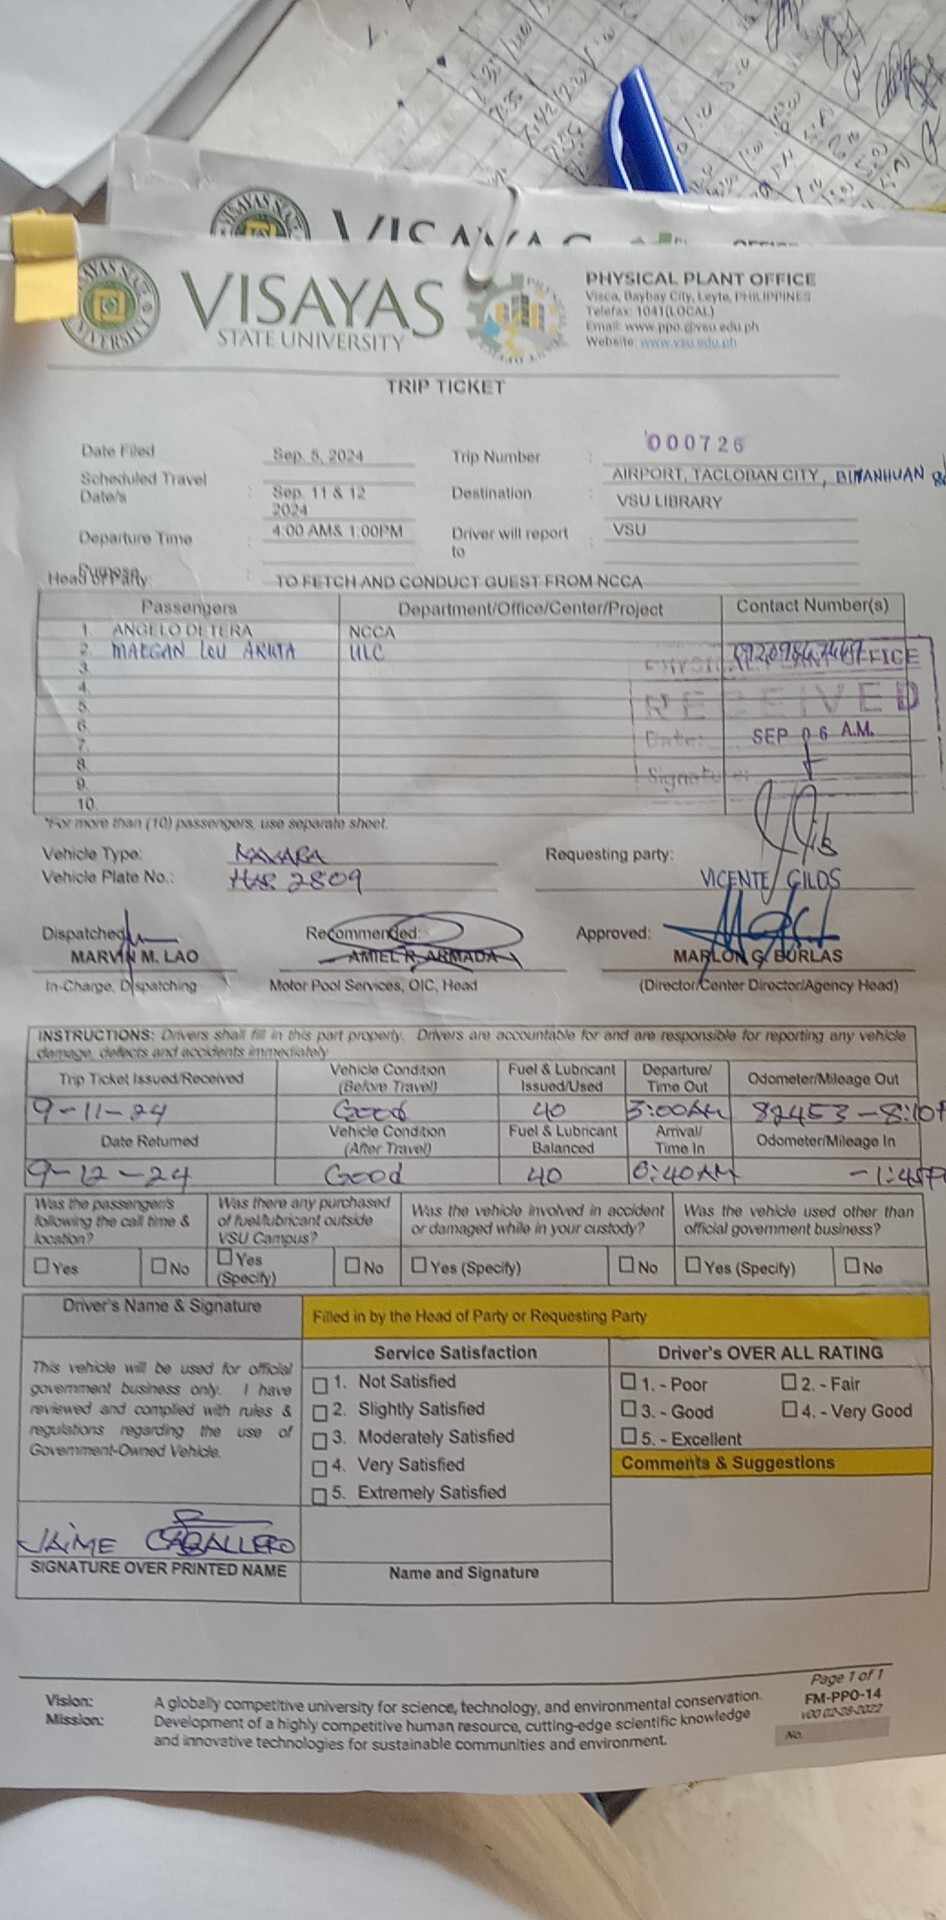 VISAYAS
VISAYAS
STATE UNIVERSITY
PHYSICAL PLANT OFFICE
Visca, Baybay City, Leyte, PHILIPPINES
Telefax: 1041(LOCAL)
Email: www.ppo.@vsu.edu.ph
Website: www.vsu.edu.ph
TRIP TICKET
Date Filed : Sep. 5, 2024 Trip Number : 000726
Scheduled Travel Date/s : Sep. 11 & 12 2024 Destination : AIRPORT, TACLOBAN CITY,
VSU LIBRARY
Departure Time : 4:00 AM& 1:00PM Driver will report to : VSU
Purpose
Head of Party: : TO FETCH AND CONDUCT GUEST FROM NCCA
Passengers Department/Office/Center/Project Contact Number(s)
1. ANGELO DETERA NCCA
2.
3.
4.
5.
6.
7.
8.
9.
10.
PHYSICAL PLANT OFFICE
RECEIVED
Date: SEP 06 A.M.
Signature:
*For more than (10) passengers, use separate sheet.
Vehicle Type: NAVARA Requesting party:
Vehicle Plate No.: 2809 VICENTE GILOS
Dispatched Recommended: Approved:
MARVIN M. LAO AMIEL R. ARMADA MARLON G. BURLAS
In-Charge, Dispatching Motor Pool Services, OIC, Head (Director/Center Director/Agency Head)
INSTRUCTIONS: Drivers shall fill in this part property. Drivers are accountable for and are responsible for reporting any vehicle
damage, defects and accidents immediately
Trip Ticket Issued/Received Vehicle Condition (Before Travel) Fuel & Lubricant Issued/Used Departure/ Time Out Odometer/Mileage Out
9-11-24 Good 40 3:00AM 82453-8:10
Date Returned Vehicle Condition (After Travel) Fuel & Lubricant Balanced Arrival/ Time In Odometer/Mileage In
9-12-24 Good 40 :40AM -1:45
Was the passenger/s following the call time & location? Was there any purchased of fuel/lubricant outside VSU Campus? Was the vehicle involved in accident or damaged while in your custody? Was the vehicle used other than official government business?
Yes No Yes (Specify) No Yes (Specify) No Yes (Specify) No
Driver's Name & Signature Filled in by the Head of Party or Requesting Party
Service Satisfaction Driver's OVER ALL RATING
This vehicle will be used for official
government business only. I have
reviewed and complied with rules &
regulations regarding the use of
Government-Owned Vehicle.
1. Not Satisfied
2. Slightly Satisfied
3. Moderately Satisfied
4. Very Satisfied
5. Extremely Satisfied
1. - Poor 2. - Fair
3. - Good 4. - Very Good
5. - Excellent
Comments & Suggestions
JAIME CABALLERO
SIGNATURE OVER PRINTED NAME Name and Signature
Page 1 of 1
FM-PPO-14
v00 02-28-2022
No.
Vision: A globally competitive university for science, technology, and environmental conservation.
Mission: Development of a highly competitive human resource, cutting-edge scientific knowledge
and innovative technologies for sustainable communities and environment.